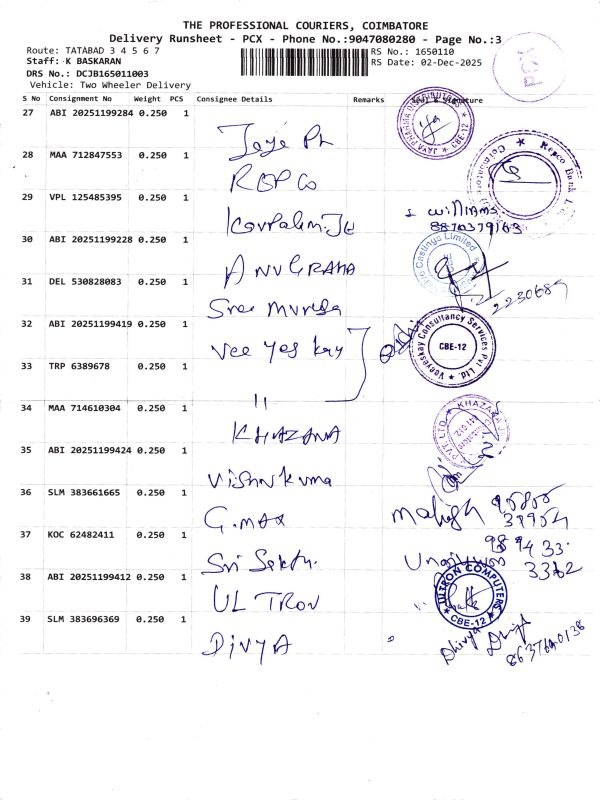 THE PROFESSIONAL COURIERS, COIMBATORE
Delivery Runsheet - PCX - Phone No.:9047080280 - Page No.:3
Route: TATABAD 3 4 5 6 7
Staff: K BASKARAN
RS No.: 1650110
RS Date: 02-Dec-2025
DRS No.: DCJB165011003
Vehicle: Two Wheeler Delivery
S No Consignment No Weight PCS Consignee Details Remarks
27 ABI 20251199284 0.250 1
Jaya Ph
28 MAA 712847553 0.250 1
REPCO
29 VPL 125485395 0.250 1
8870379163
30 ABI 20251199228 0.250 1
ANUGRAHA
31 DEL 530828083 0.250 1
Sree Muruga
2230689
32 ABI 20251199419 0.250 1
Vee yes kay
Veeyeskay Consultancy Services Pvt Ltd.
CBE-12
33 TRP 6389678 0.250 1
"
34 MAA 714610304 0.250 1
KHAZANA
35 ABI 20251199424 0.250 1
Vishnukuma
36 SLM 383661665 0.250 1
G.max
37 KOC 62482411 0.250 1
Sri Sakthi
98943 3
3362
38 ABI 20251199412 0.250 1
ULTRON
ULTRON COMPUTERS
CBE-12
39 SLM 383696369 0.250 1
DIVYA
Dhivya